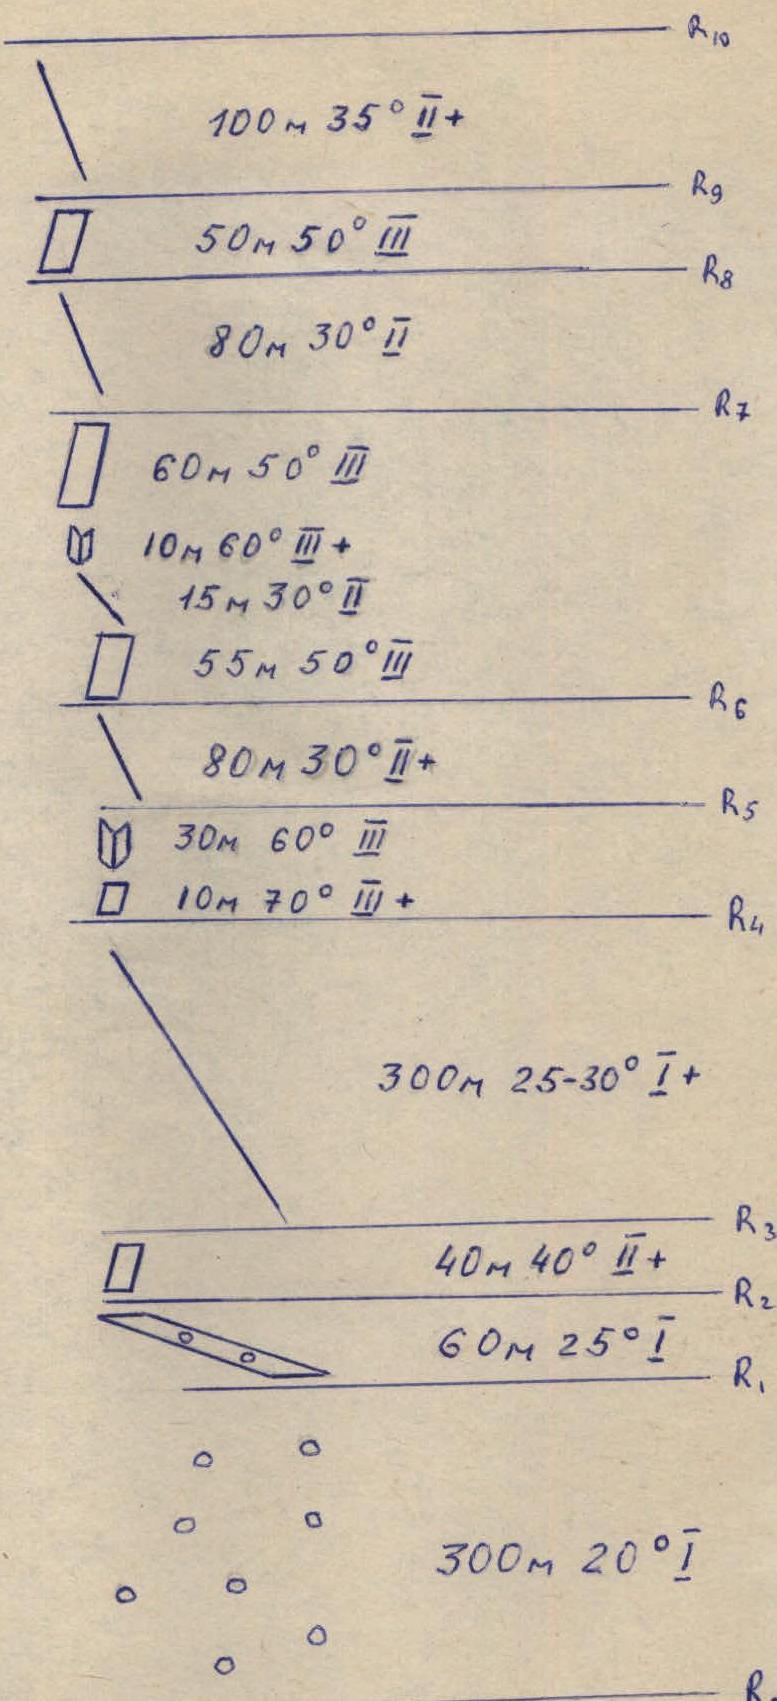 R10
100м 35° II+
R9
50м 50° III
R8
80м 30° II
R7
60м 50° III
10м 60° III+
15м 30° II
55м 50° III
R6
80м 30° II+
R5
30м 60° III
10м 70° III+
R4
300м 25-30° I+
R3
40м 40° II+
R2
60м 25° I
R1
300м 20° I
R